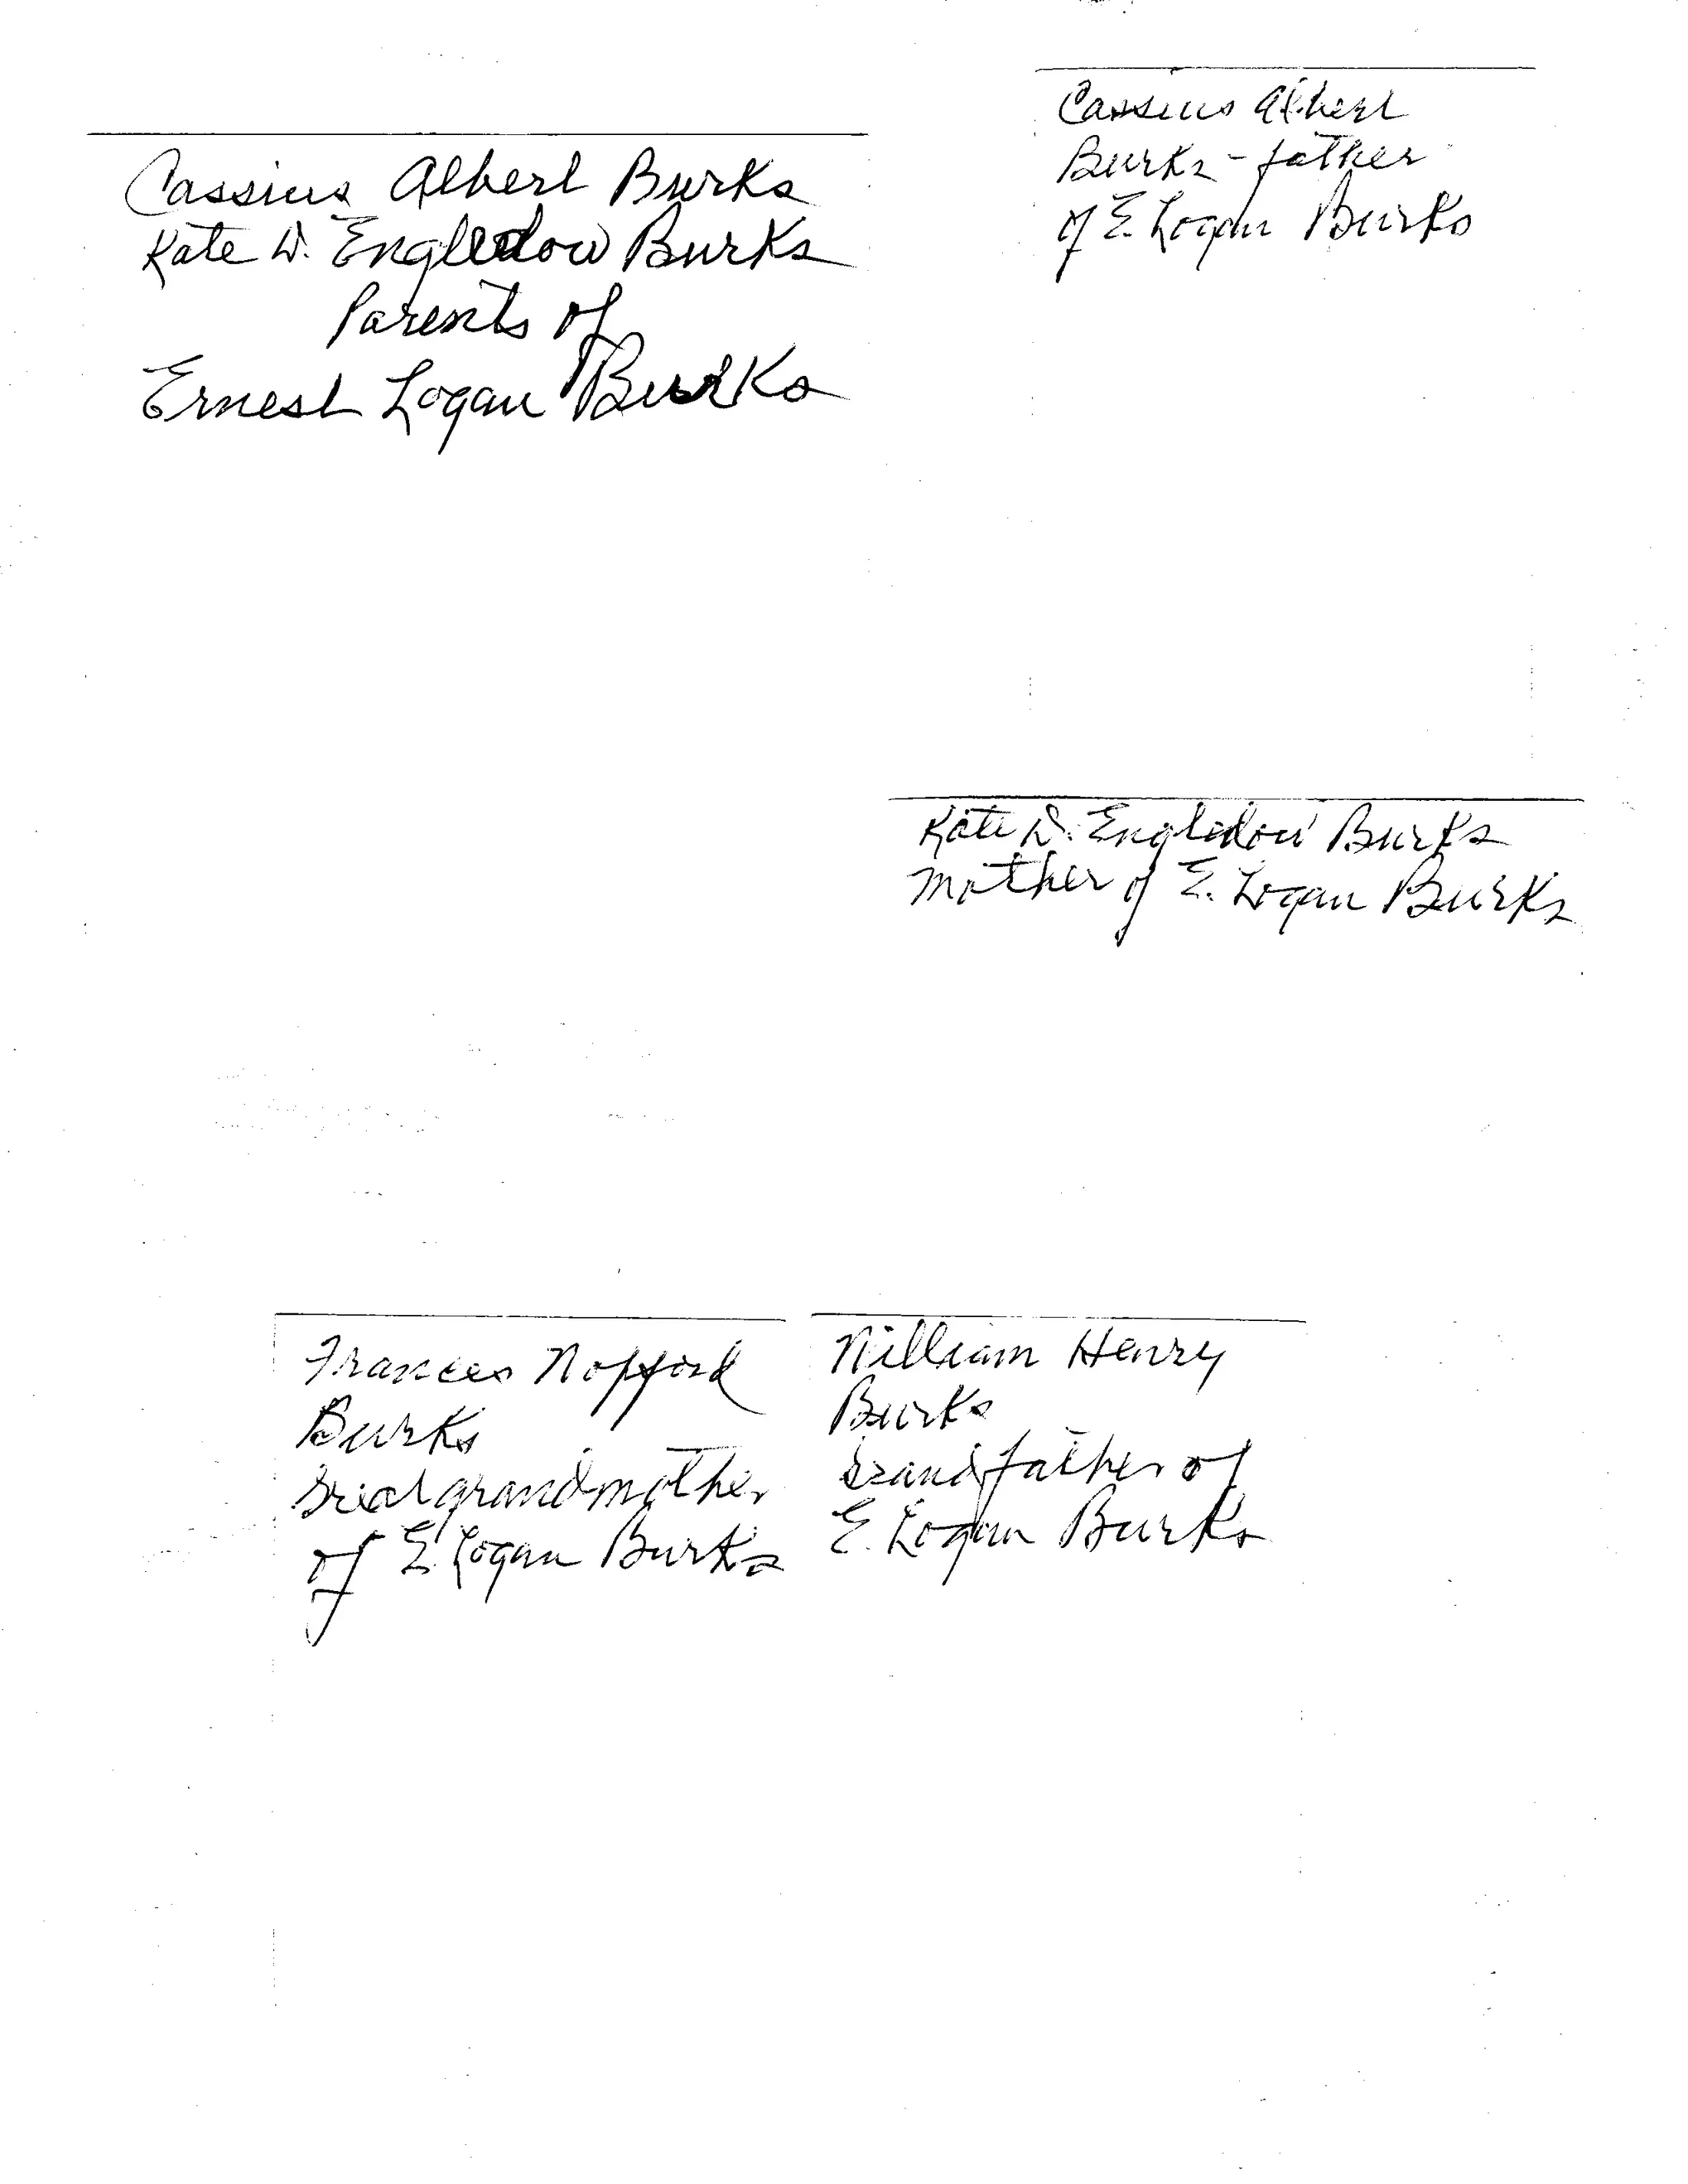 Cassius Albert Burks
Kate D. Engledow Burks
Parents of
Ernest Logan Burks
Cassius Albert
Burks - father
of E. Logan Burks
Kate D. Engledow Burks
Mother of E. Logan Burks
Frances
Burks
Great grandmother
of E. Logan Burks
William Henry
Burks
Grandfather of
E. Logan Burks